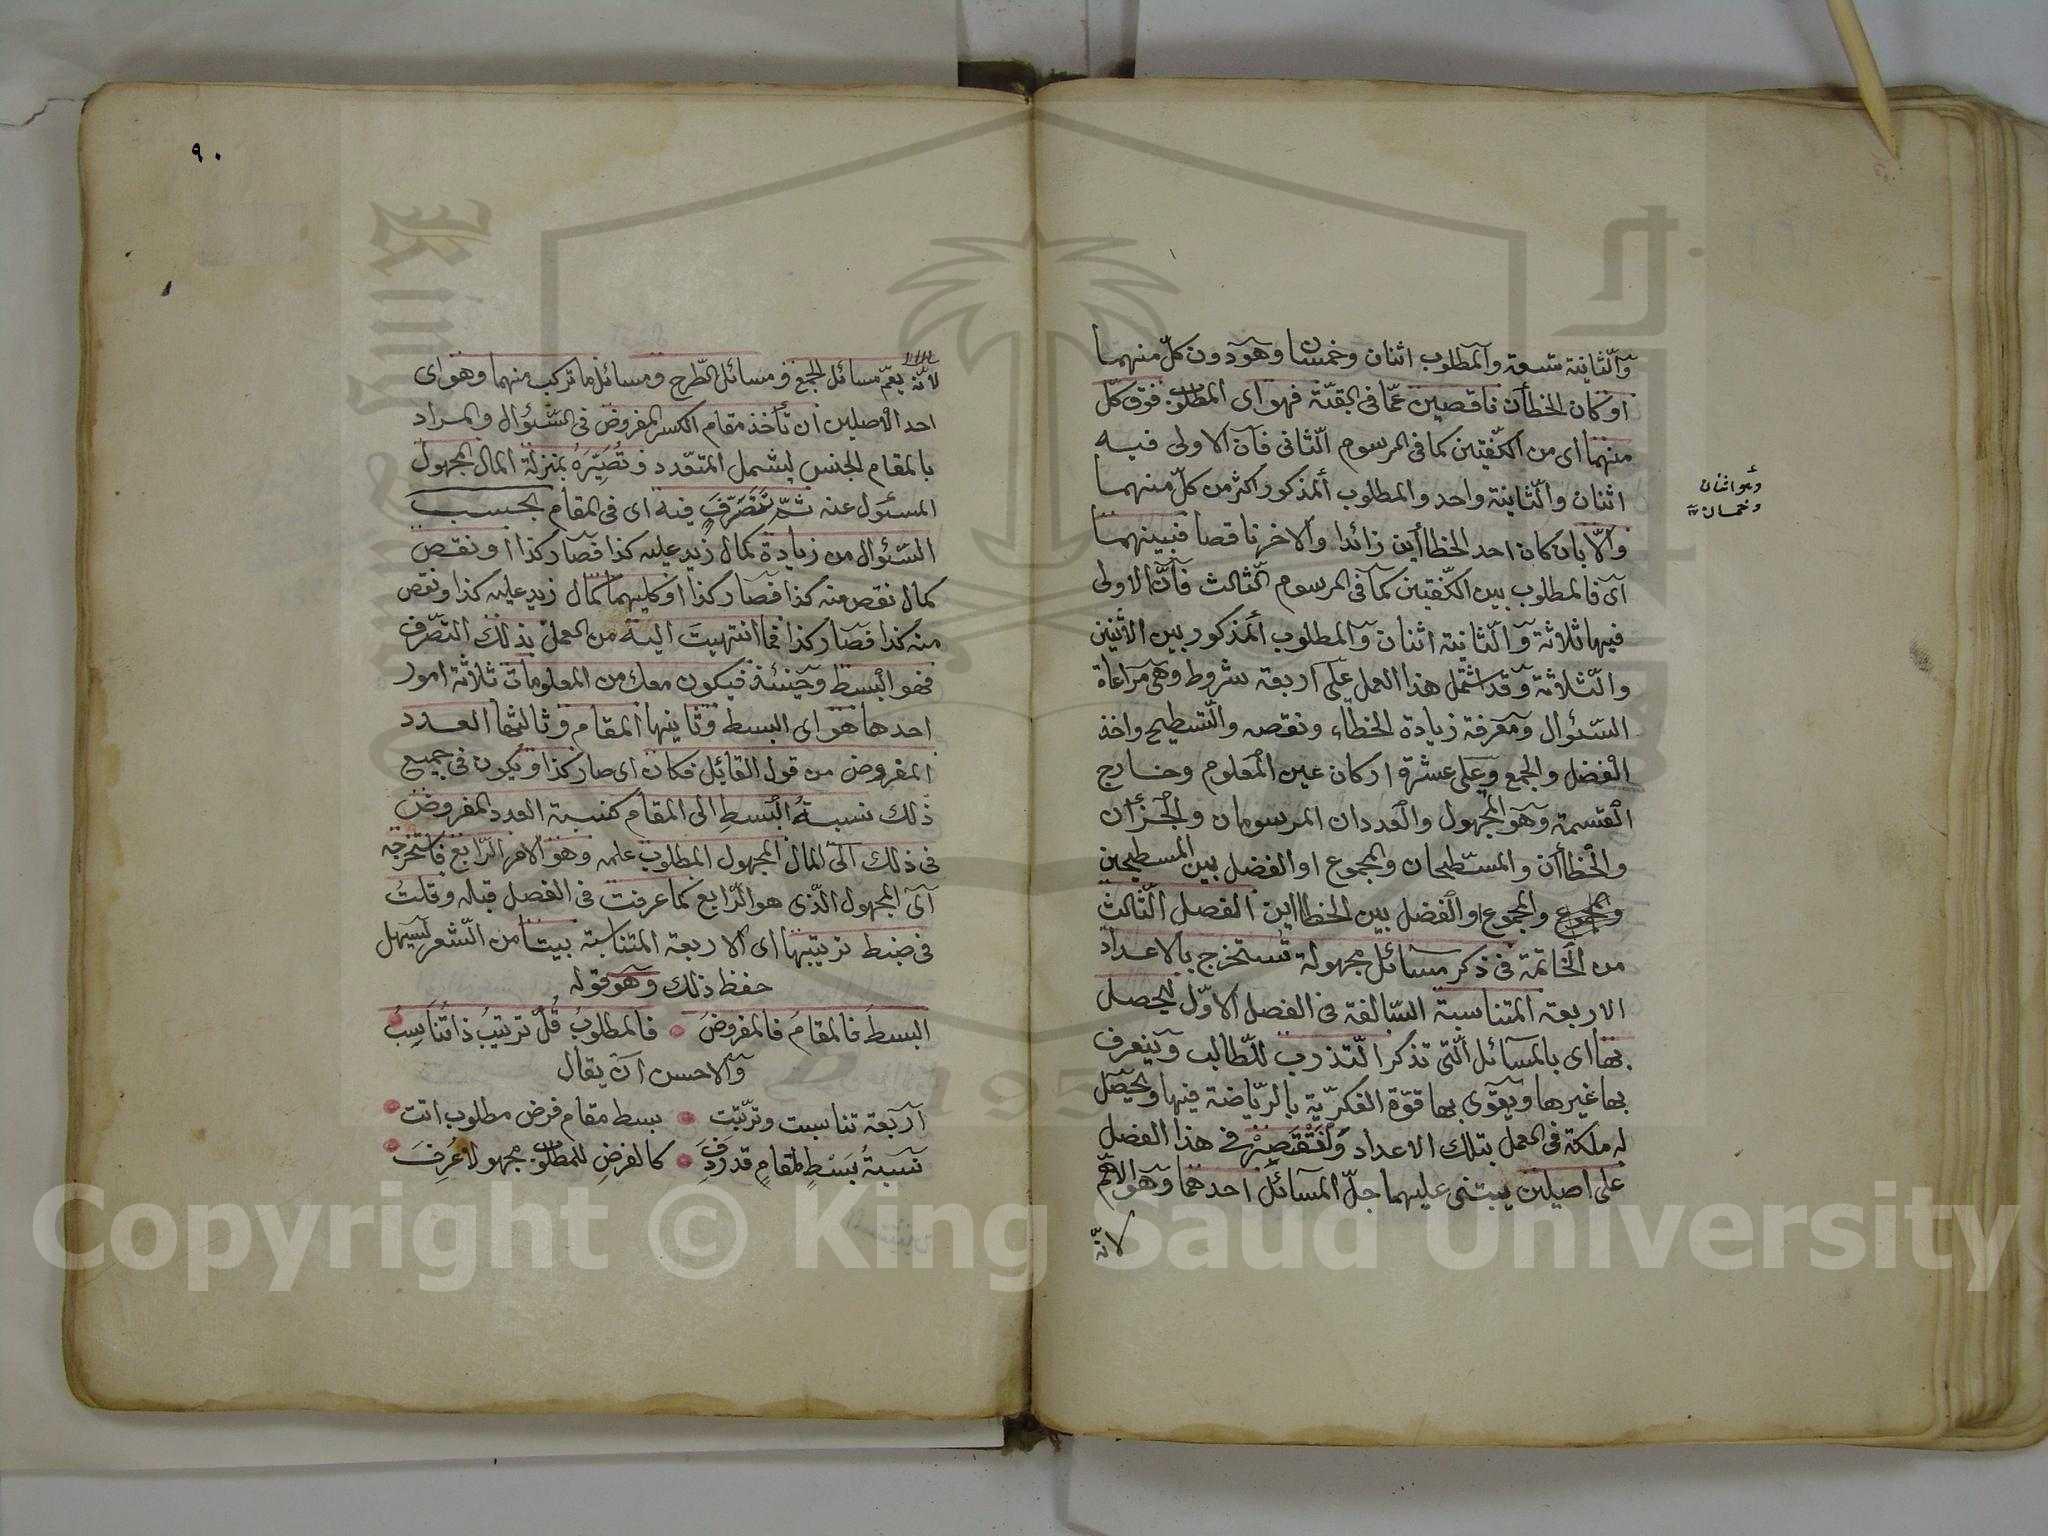 والثانية تسعة والمطلوب اثنان وخمسان وهو دون كلّ منهما
او كان الخطأان ناقصين عمّا فى القبّة فهو اى المطلوب فوق كلّ
منهما اى من الكفّتين كما فى المرسوم الثّانى فان الاولى فيه
اثنان والثّانية واحد والمطلوب المذكور اكثر من كلّ منهما
وهو اثنان
وخمسان
والّا بان كان احد الخطاأين زائدا والاخر ناقصا فبينهما
اى فالمطلوب بين الكفّتين كما فى المرسوم الثّالث فانّ الاولى
فيها ثلاثة والثّانية اثنان والمطلوب المذكور بين الاثنين
والثّلاثة وقد اشتمل هذا العمل على اربعة شروط وهى مراعاة
السّئوال ومعرفة زيادة الخطاء ونقصه والتّسطيح واخذ
الفضل والجمع وعلى عشرة اركان عين المعلوم وخارج
القسمة وهو المجهول والعددان المرسومان والجزأن
والخطأن والمسطّحان والمجموع او الفضل بين المسطحين
والمجموع او الفضل بين الخطااين الفصل الثّالث
من الخاتمة فى ذكر مسائل مجهولة تستخرج بالاعداد
الاربعة المتناسبة السّالفة فى الفصل الاوّل ليحصل
بها اى بالمسائل الّتى تذكر التدرب للطّالب ويتعرف
بها غيرها ويقوى بها قوّة الفكريّة بالرّياضة فيها ويحصّل
له ملكة فى العمل بتلك الاعداد ولنقتصر فى هذا الفصل
على اصيلين يبتنى عليهما جلّ المسائل احدهما وهو الاهمّ
لانّه
٩٠
لانّه يعمّ مسائل الجمع ومسائل الطّرح ومسائل ما تركب منهما وهو اى
احد الاصيلين ان تأخذ مقام الكسر المفروض فى السّئوال والمراد
بالمقام الجنس ليشمل المتعّدد وتصيّره بمنزلة المال المجهول
المسئول عنه ثمّ تتصرّف فيه اى فى المقام بحسب
السّئوال من زيادة كمال زيد عليه كذا فصار كذا او نقص
كمال نقص منه كذا فصار كذا او كليهما كمال زيد عليه كذا ونقص
منه كذا فصار كذا فما انتهيت اليه من العمل بذلك التصّرف
فهو البسط وحينئذ فيكون معك من المعلومات ثلاثة امور
احدها هو اى البسط وثانيها المقام وثالثها العدد
المفروض من قول القائل فكان اى صار كذا ويكون فى جميع
ذلك نسبة البسط الى المقام كنسبة العدد المفروض
فى ذلك الى المال المجهول المطلوب علمه وهو الامر الرّابع فاستخرجه
اى المجهول الّذى هو الرّابع كما عرفت فى الفصل قبله وقلت
فى ضبط ترتيبها اى الاربعة المتناسبة بيتا من الشّعر ليسهل
حفظ ذلك وهو قوله
البسط فالمقام فالمفروض فالمطلوب قل ترتيب ذا تناسب
والاحسن ان يقال
اربعة تناسبت وترّتبت بسط مقام فرض مطلوب اتت
نسبة بسط لمقام قد ردف كالفرض للمطلوب مجهولا عرف
Copyright © King Saud University